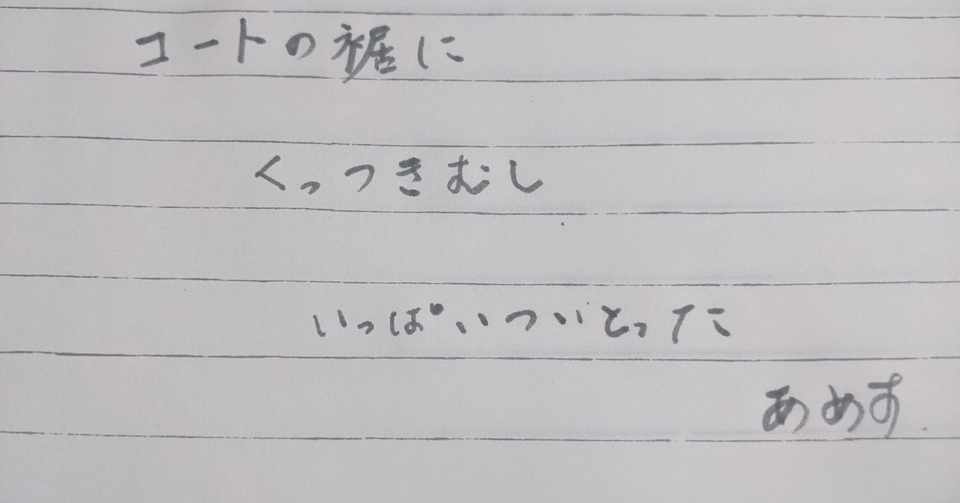 コートの裾に
くっつきむし
いっぱいついとった
あめす